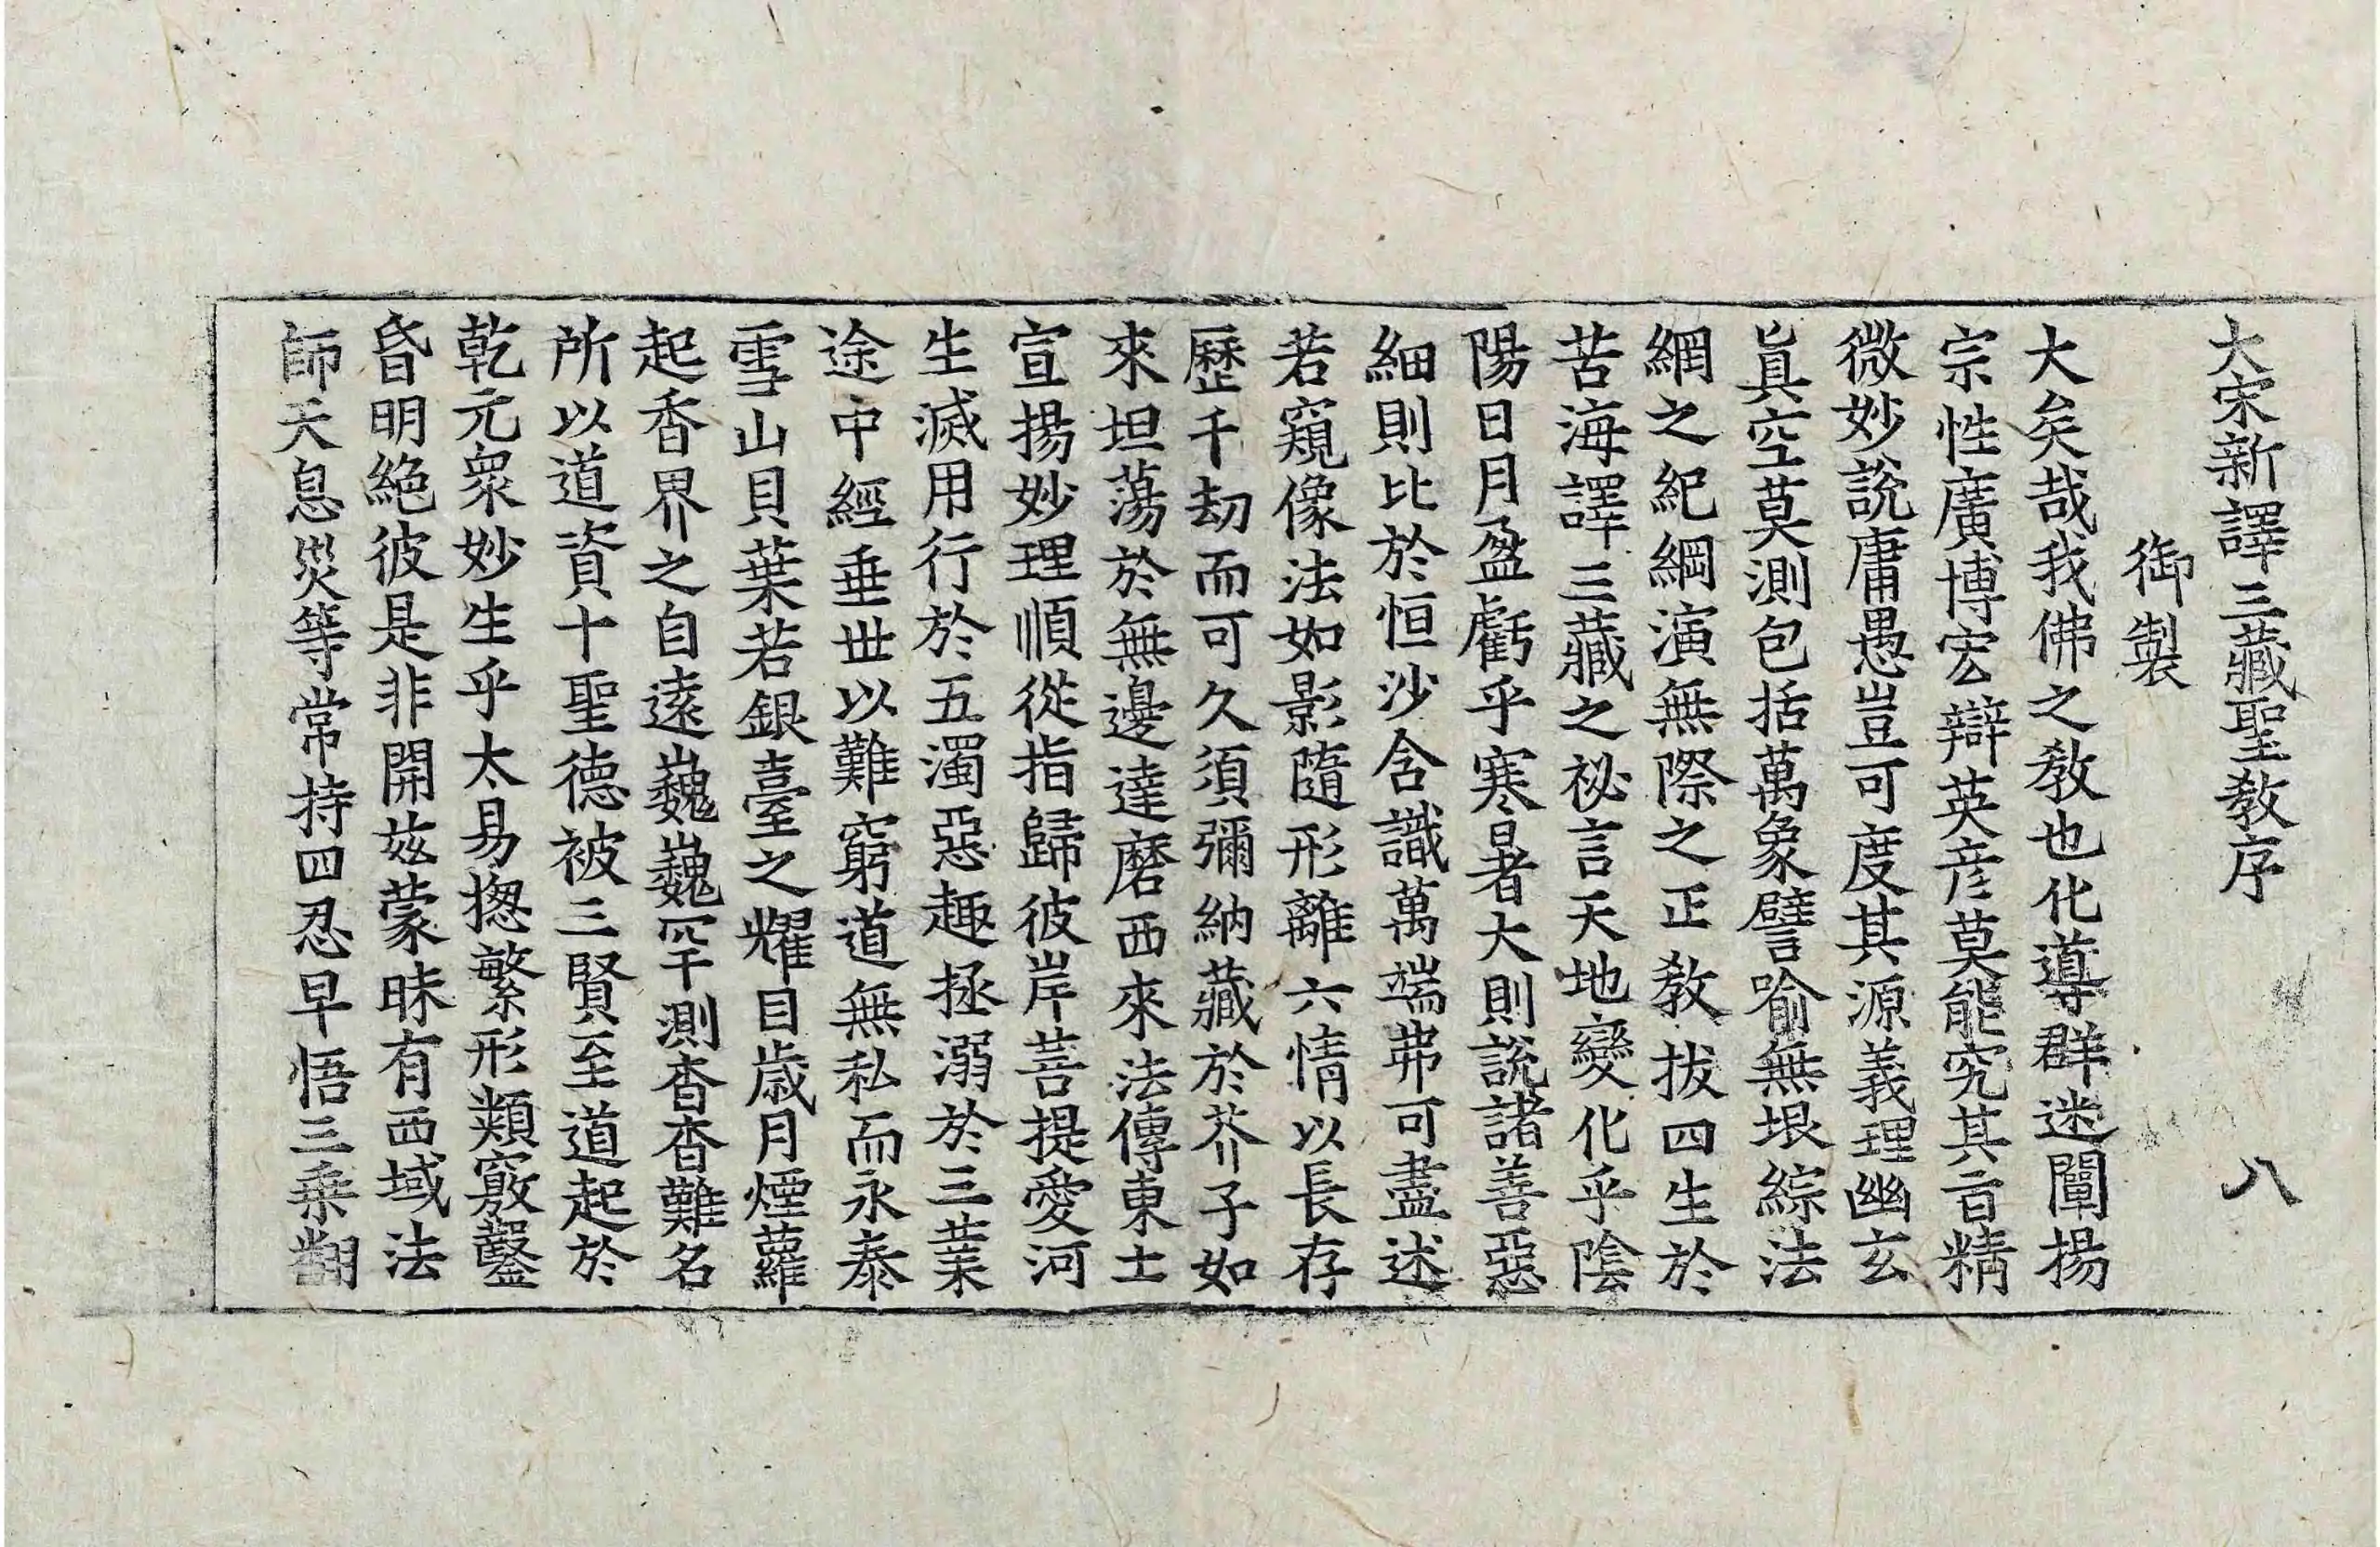 大宋新譯三藏聖教序 八
御製
大矣哉我佛之教也化導群迷闡揚
宗性廣博宏辯英彦莫能究其旨精
微妙說庸愚豈可度其源義理幽玄
眞空莫測包括萬象譬喻無垠綜法
網之紀綱演無際之正教拔四生於
苦海譯三藏之祕言天地變化乎陰
陽日月盈虧乎寒暑大則說諸善惡
細則比於恒沙含識萬端弗可盡述
若窺像法如影隨形離六情以長存
歷千劫而可久須彌納藏於芥子如
來坦蕩於無邊達磨西來法傳東土
宣揚妙理順從指歸彼岸菩提愛河
生滅用行於五濁惡趣拯溺於三業
途中經垂世以難窮道無私而永泰
雪山貝葉若銀臺之耀目歲月煙蘿
起香界之自遠巍巍罕測杳杳難名
所以道資十聖德被三賢至道起於
乾元衆妙生乎太易揔繁形類竅鑿
昏明絶彼是非開茲蒙昧有西域法
師天息災等常持四忍早悟三乘翻